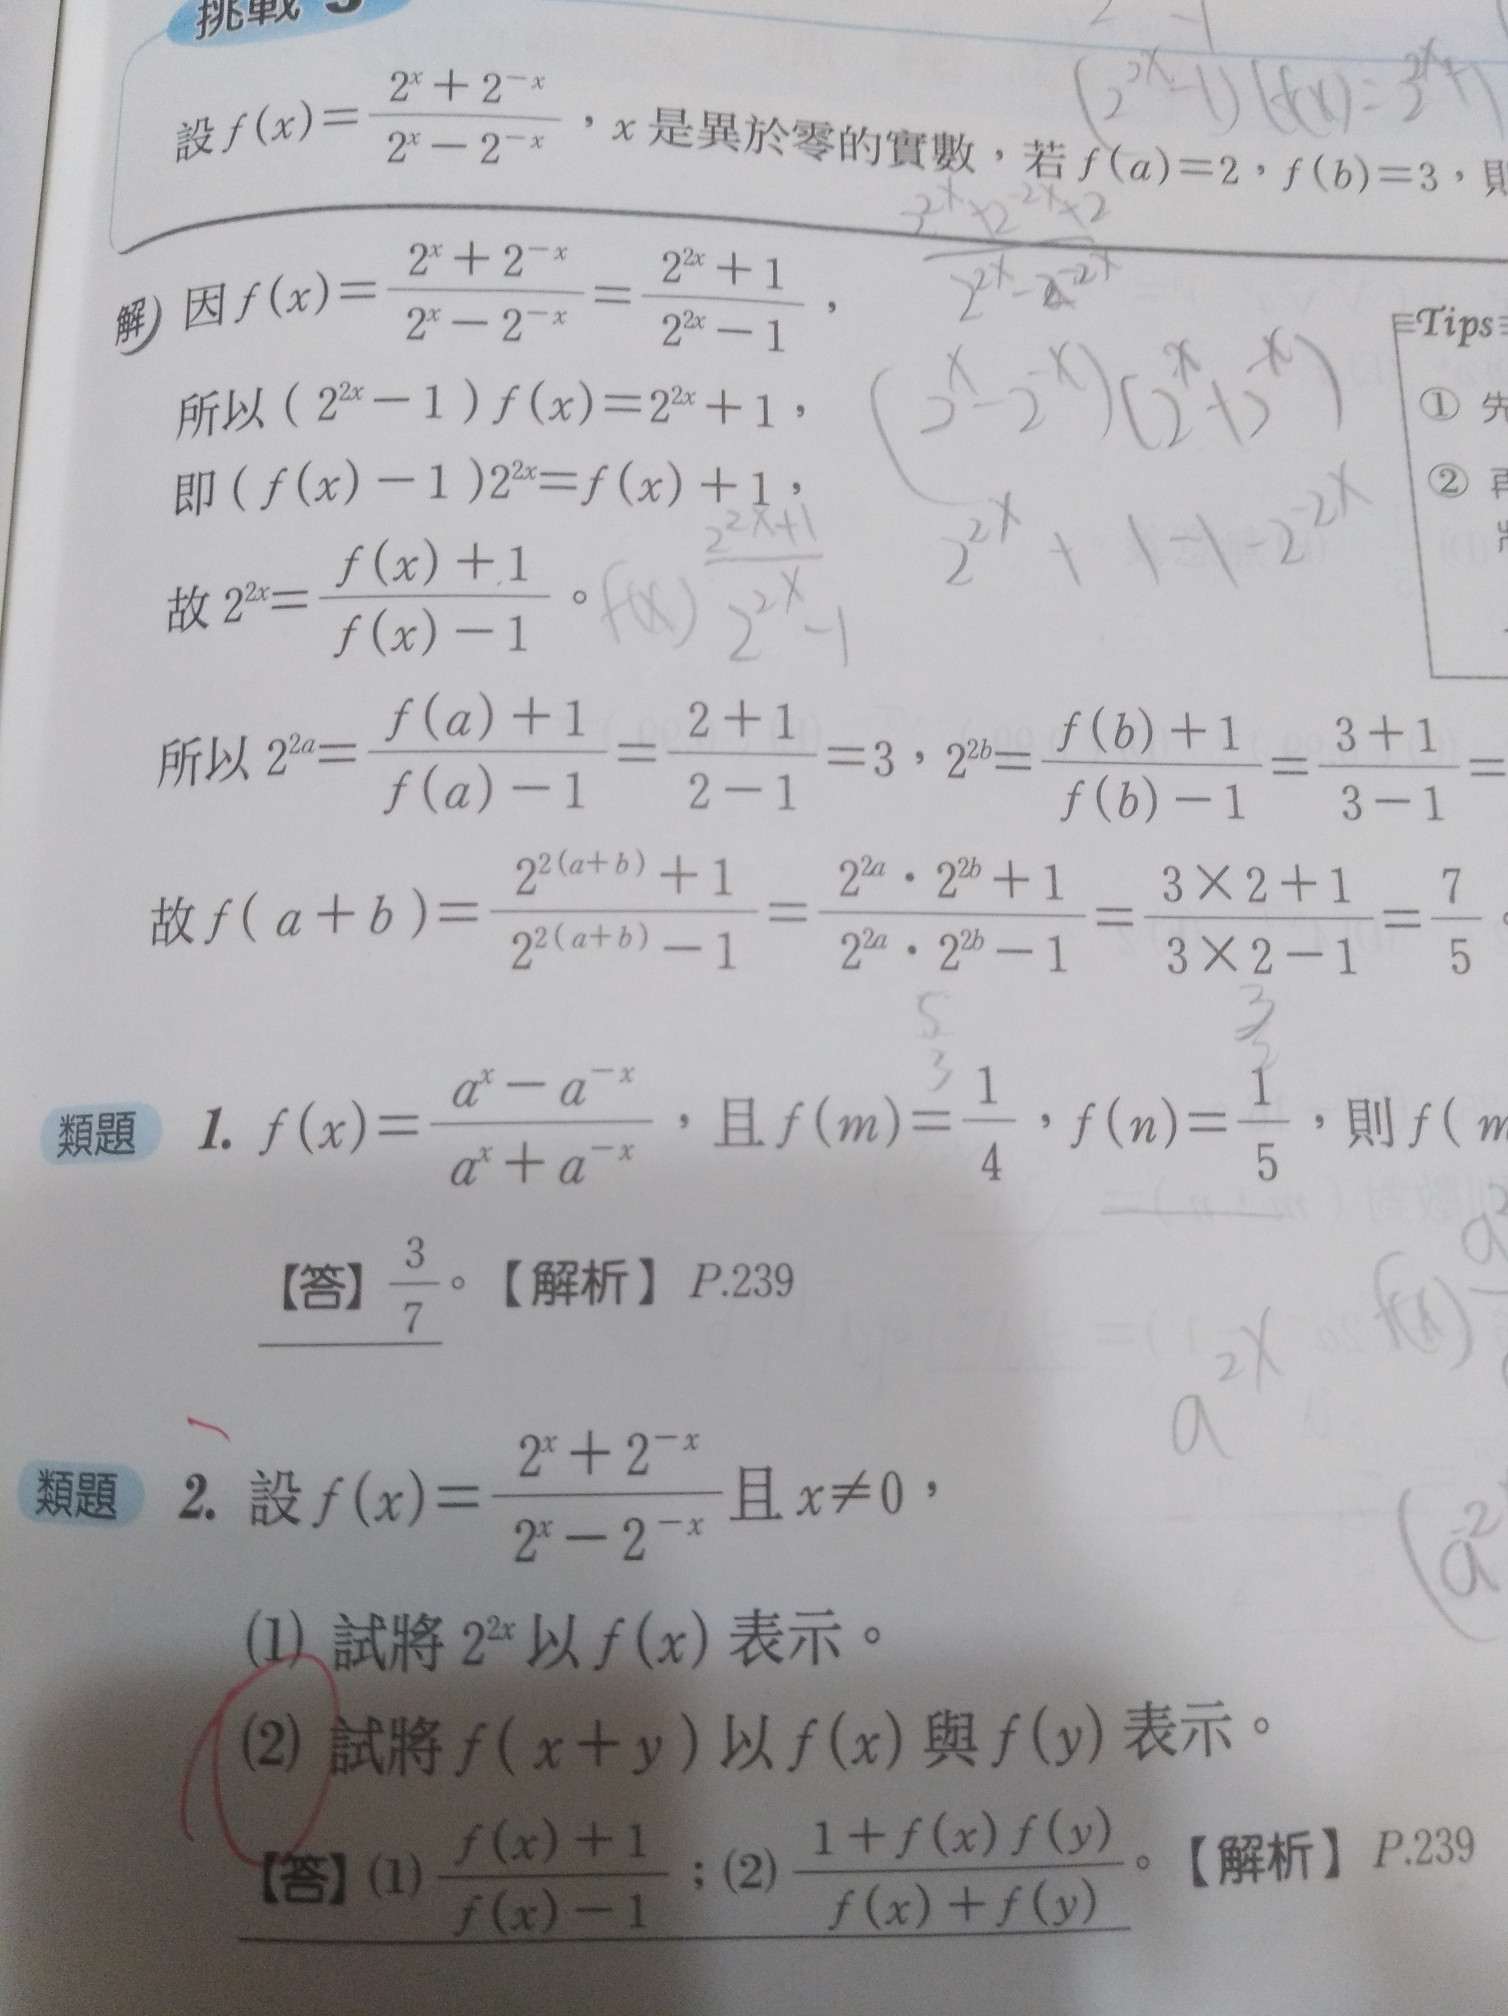 挑戰
設 f(x)=(2^x+2^-x)/(2^x-2^-x),x 是異於零的實數,若 f(a)=2,f(b)=3,則
解 因 f(x)=(2^x+2^-x)/(2^x-2^-x)=(2^2x+1)/(2^2x-1),
所以(2^2x-1)f(x)=2^2x+1,
即(f(x)-1)2^2x=f(x)+1,
故 2^2x=(f(x)+1)/(f(x)-1)。
Tips
①先
②再
所以 2^2a=(f(a)+1)/(f(a)-1)=(2+1)/(2-1)=3,2^2b=(f(b)+1)/(f(b)-1)=(3+1)/(3-1)=
故 f(a+b)=(2^2(a+b)+1)/(2^2(a+b)-1)=(2^2a·2^2b+1)/(2^2a·2^2b-1)=(3×2+1)/(3×2-1)=7/5。
類題 1. f(x)=(a^x-a^-x)/(a^x+a^-x),且 f(m)=1/4,f(n)=1/5,則 f(m
【答】3/7。【解析】P.239
類題 2. 設 f(x)=(2^x+2^-x)/(2^x-2^-x) 且 x≠0,
(1) 試將 2^2x 以 f(x) 表示。
(2) 試將 f(x+y) 以 f(x) 與 f(y) 表示。
【答】(1) (f(x)+1)/(f(x)-1);(2) (1+f(x)f(y))/(f(x)+f(y))。【解析】P.239
(2^2x-1)(f(x)=2^2x+1)
2^2x+2^-2x+2
2^2x-2^-2x
(2^x-2^-x)(2^x+2^-x)
2^2x+1-1-2^-2x
f(x) (2^2x+1)/(2^2x-1)
5
3
3
2
a^2x f(x)
(a^2